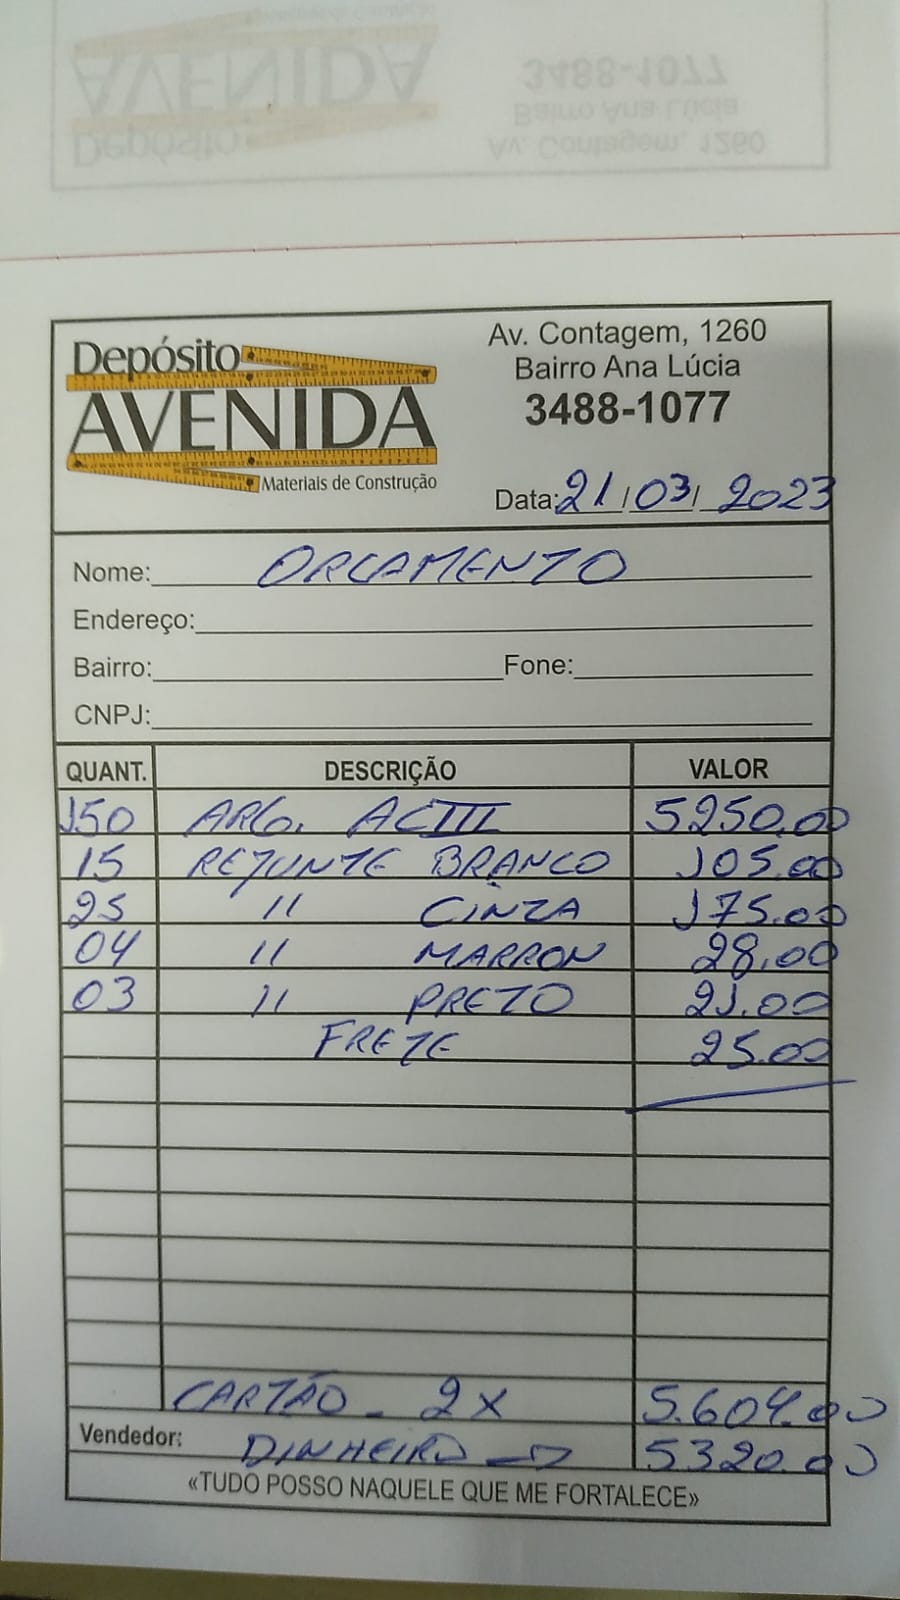 AVENIDA
Depósito
3488-1077
Bairro Ana Lúcia
Av. Contagem, 1260
Depósito
AVENIDA
Materiais de Construção
Av. Contagem, 1260
Bairro Ana Lúcia
3488-1077
Data: 21/03/2023
Nome: ORCAMENTO
Endereço:
Bairro: Fone:
CNPJ:
QUANT. DESCRIÇÃO VALOR
150 ARG. ACIII 5250,00
15 REJUNTE BRANCO 105.00
25 " CINZA 175.00
04 " MARRON 28,00
03 " PRETO 21.00
FRETE 25.00
CARTÃO - 2X 5.604.00
Vendedor: DINHEIRO -> 5320.00
«TUDO POSSO NAQUELE QUE ME FORTALECE»